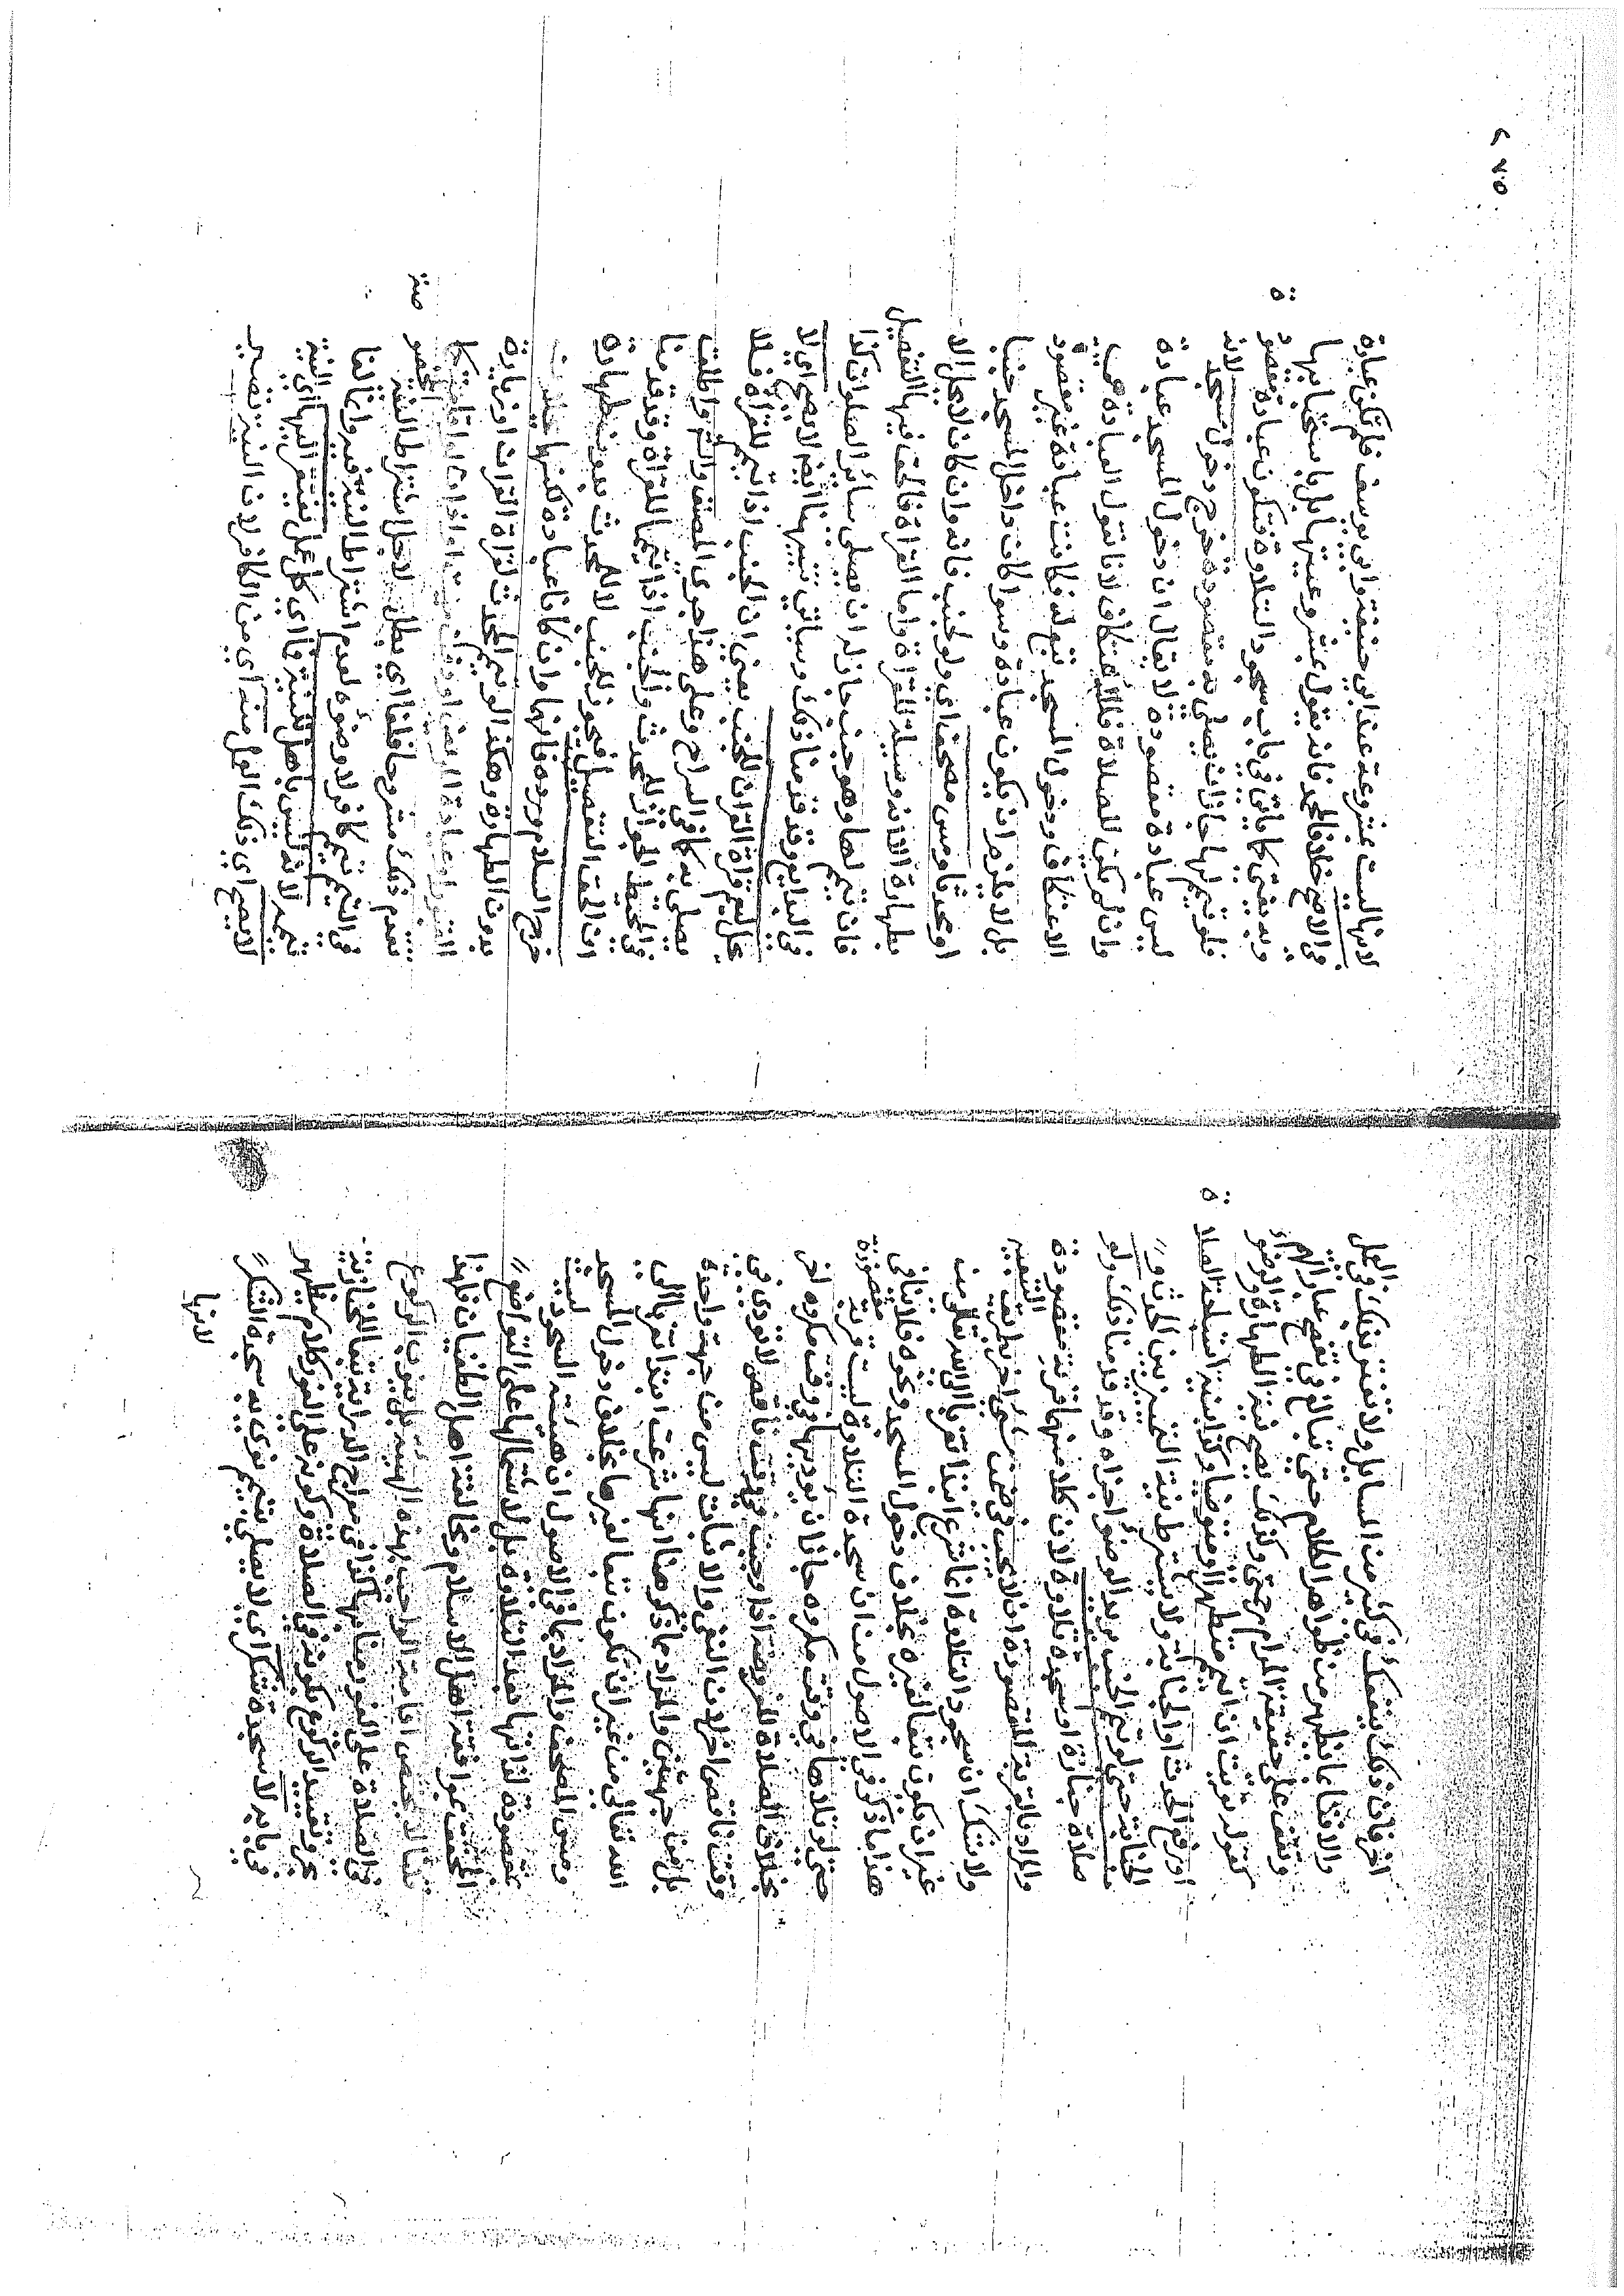 اخر فان ذلك ينفعك في كثير من المسايل ولا تغتر بذلك في العمل
والافتا بما يظهر من ظواهر الكلام حتى تبالغ في تتبع عباراتهم
وتقف على حقيقة المرام وكذلك تصح نية الطهارة والوضو
كقوله نويت ان اتيمم متطهرا او متوضيا وكذا بنية استباحة الصلاة
او رفع الحدث او الجنابة ولا يشترط نية التمييز بين الحدث و
الجنابة حتى لو تيمم الجنب يريد الوضوء اجزاه وقد قدمنا ذلك ولو
صلاة جنازة او سجدة تلاوة لان كلا منهما قربة مقصودة
والمراد بالقربة المقصودة ان لا يجب في ضمن شي اخر بطريق التبعية
ولا شك ان سجود التلاوة انما شرع ابتدا تقربا الى الله تعالى من
غير ان يكون تبعا لغيره بخلاف دخول المسجد ونحوه فلا ينافي
هذا ما ذكر في الاصول من ان سجدة التلاوة ليست قربة مقصودة
حتى لو تلاها في وقت مكروه جاز ان يوديها في وقت مكروه اخر
بخلاف الصلاة المفروضة اذا وجبت في وقت ناقص لا تودى في
وقت ناقص اخر لان النفي والاثبات ليس من جهة واحدة
بل من جهتين والمراد بما ذكر هنا انها شرعت ابتدا تقربا الى
الله تعالى من غير ان تكون تبعا لغيرها بخلاف دخول المسجد
ومس المصحف والمراد بما في الاصول ان هيئة السجود ليست
مقصودة لذاتها عند التلاوة بل لاشتمالها على التواضع
المحقق بموافقة اهل الاسلام ومخالفة اهل الطغيان فلهذا
قلنا لا يختص اقامة الواجب بهذه الهيئة بل ينوب الركوع
في الصلاة على الفور منابها كذا في معراج الدراية تبعا للخبازية
بحر وتقييد الركوع بكونه في الصلاة وكونه على الفور كلام سيظهر
في بابه لا سجدة شكر اي لا يصلي بتيمم نوى به سجدة الشكر
لانها
لانها ليست بمشروعة عند ابي حنيفة وابي يوسف فلم تكن عبادة
في الاصح خلافا لمحمد فانه يقول بمشروعيتها بل باستحبابها
وبه يفتى كما ياتي في باب سجود التلاوة فتكون عبادة مقصودة
فلو تيمم لها جاز ان يصلي به مقصودة خرج دخول مسجد لانه
ليس عبادة مقصودة لا يقال ان دخول المسجد عبادة
وان لم يكن للصلاة فللاعتكاف لانا نقول العبادة هي
الاعتكاف ودخول المسجد تبع له فكانت عبادة غير مقصودة
بل لا يلزم ان يكون عبادة وسوا كان داخل المسجد جنبا
او محدثا ومس مصحف اي ولو لجنب فانه وان كان لا يحل الا
بطهارة الا انه وسيلة للقراة واما القراة فالحق فيها التفصيل
فان تيمم لها وهو جنب جاز له ان يصلي سائر الصلوات كذا
في البدايع وقد قدمنا ذلك وسياتي ايضا لا يصح اي لا
يحل تيمم قراة القران للجنب يعني ان الجنب اذا تيمم للقراة فلا
يصلي به كما في السراج وعلى هذا جرى المصنف واطلق
في المحيط الجواز للمحدث والجنب اذا تيمما للقراة وقد قدمنا
ان الحق التفصيل فيجوز للجنب لا للمحدث بدون طهارة
خرج السلام ورده فانهما وان كانا عبادة لكنهما يحلان
بدون الطهارة وهكذا لو تيمم المحدث لقراة القران او زيارة
القبور او عيادة المريض او دفن ميت او اذان او اقامة كما
تقدم ذلك مشروحا فلغا اي بطل لاجل اشتراط النية المخصوصة
في التيمم تيمم كافر لا وضوءه لعدم اشتراط النية فيه وانما لغا
تيممه لانه ليس باهل للنية فما اي كل عمل يفتقر اليها اي النية
لا يصح اي ذلك العمل منه اي من الكافر لان النية تصير